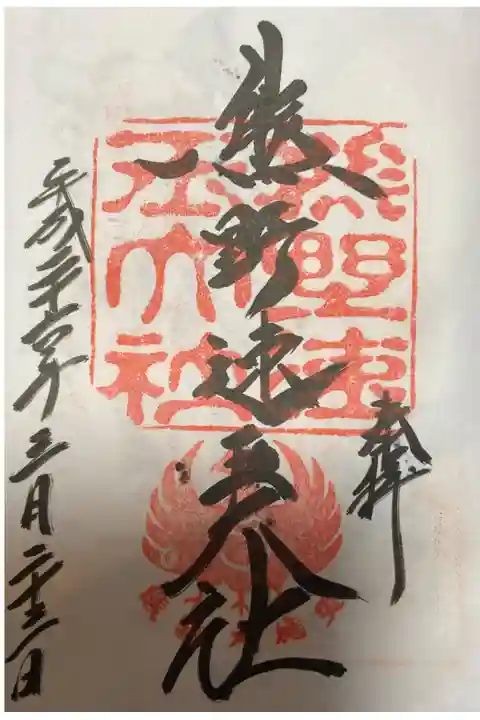 奉拝
熊野速玉大社
平成二十六年三月二十二日
熊野速
玉大社